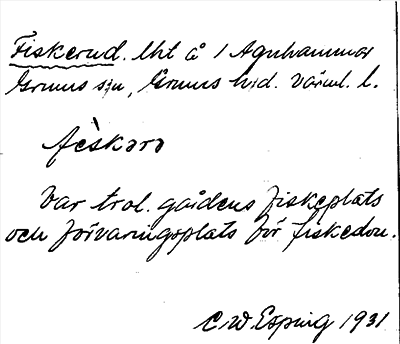 Fiskerud. lht å 1 Agnhammar
Grums sn, Grums hrd. Värml. l.
fèskərə
Var trol. gårdens fiskeplats
och förvaringsplats för fiskedon.
C W Esping 1931